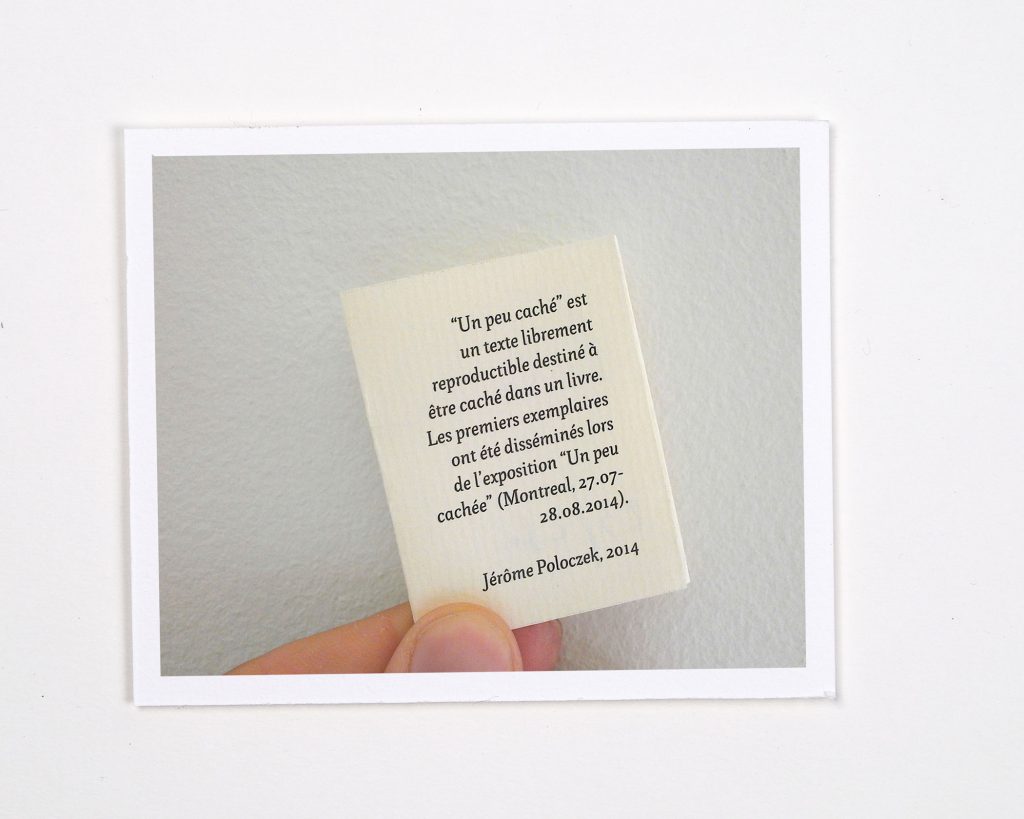 “Un peu caché” est
un texte librement
reproductible destiné à
être caché dans un livre.
Les premiers exemplaires
ont été disséminés lors
de l’exposition “Un peu
cachée” (Montreal, 27.07-
28.08.2014).
Jérôme Poloczek, 2014